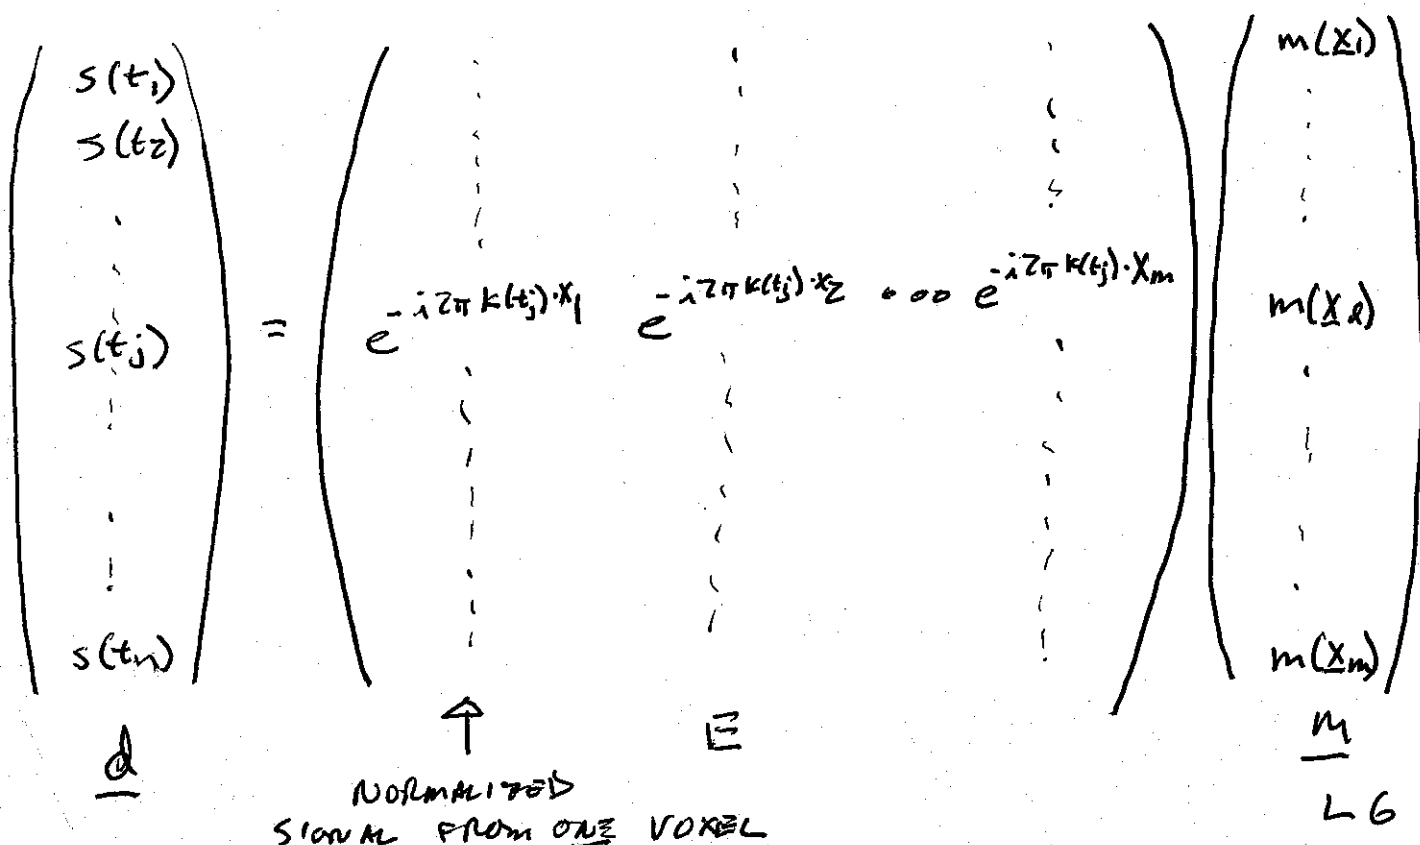 s(t₁)
s(t₂)
s(tⱼ)
s(tₙ)
d
=
e^{-i2πk(tⱼ)·x₁} e^{-i2πk(tⱼ)·x₂} ... e^{-i2πk(tⱼ)·xₘ}
E
m(x₁)
m(xₗ)
m(xₘ)
m
↑
NORMALIZED
SIGNAL FROM ONE VOXEL
L6